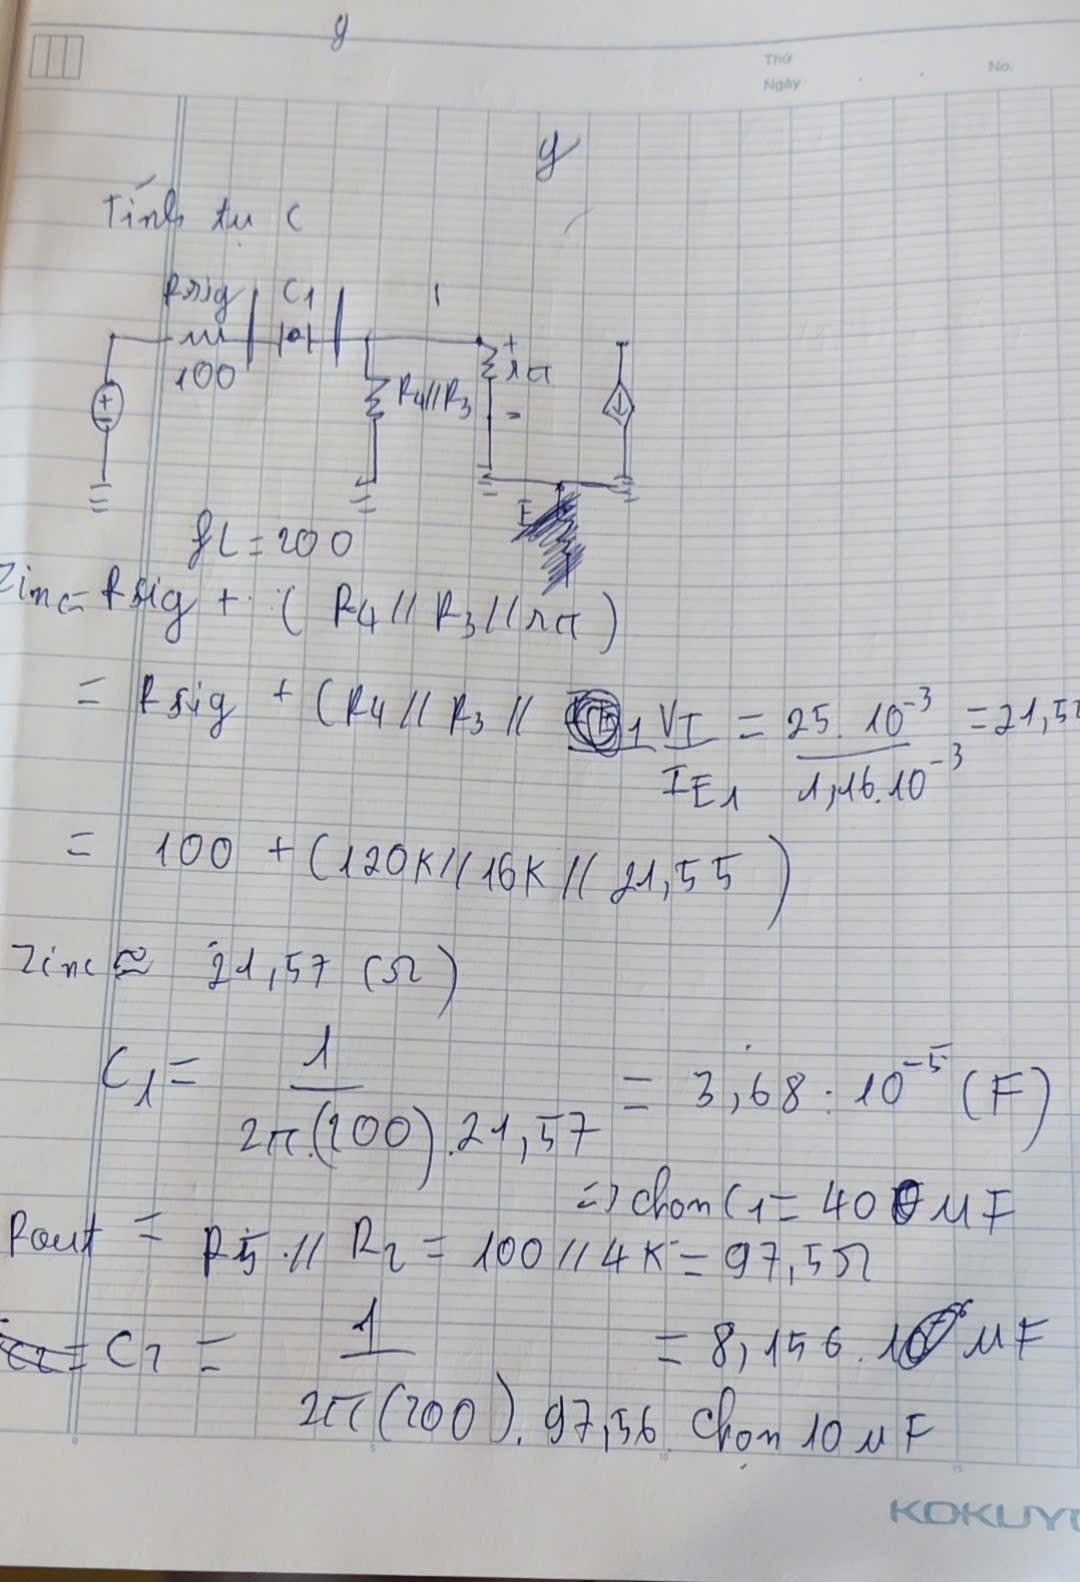 y
Thứ
Ngày
No.
y
Tính tụ C
Rsig C1
100
R4//R3
+
rπ
-
E
fL = 200
Zinc = Rsig + ( R4 // R3 // rπ )
= Rsig + (R4 // R3 // VT / IE1 = 25.10⁻³ / 1,16.10⁻³ = 21,55
= 100 + (120K // 16K // 21,55 )
Zinc ≈ 21,57 (Ω)
C1 = 1 / 2π.(200).21,57 = 3,68.10⁻⁵ (F)
=> chọn C1 = 40 μF
Rout = R5 // R2 = 100 // 4K = 97,5Ω
= C2 = 1 / 2π(200).97,56 = 8,156. μF
Chọn 10 μF
KOKUYO